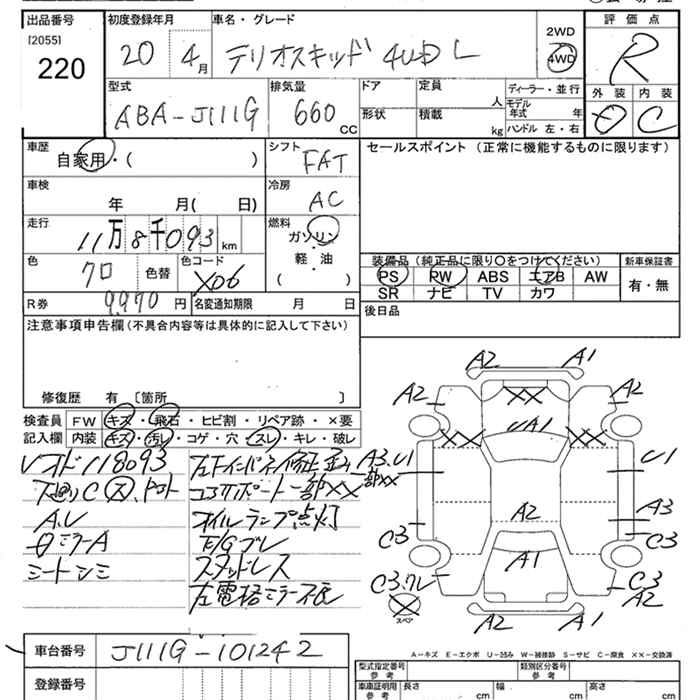 出品番号
[2055]
220
初度登録年月
20 4月
車名・グレード
テリオスキッド 4WD L
2WD
4WD
評価点
R
外装 内装
C
型式
ABA-J111G
排気量
660 CC
ドア
形状
定員
人
積載
kg
ディーラー・並行
モデル
年式 年
ハンドル 左・右
車歴
自家用・( )
シフト
FAT
セールスポイント (正常に機能するものに限ります)
車検
年 月( 日)
冷房
AC
走行
11万8千093 km
燃料
ガソリン
・
軽・油
( )
色
クロ
色替
色コード
X06
R券
9,990 円
名変通知期限 月 日
装備品 (純正品に限り○をつけてください)
PS PW ABS エアB AW
SR ナビ TV カワ
新車保証書
有・無
後日品
注意事項申告欄 (不具合内容等は具体的に記入して下さい)
修復歴 有 〔箇所 〕
検査員
記入欄
FW キズ・飛石・ヒビ割・リペア跡・×要
内装 キズ・汚レ・コゲ・穴・スレ・キレ・破レ
118093
下廻りC
ミラーA
シートシミ
コアサポート一部XX
オイルランプ点灯
E/Gブレ
スタッドレス
左電格ミラー不良
A2 A1
A2 XX A2
A1
XX XX
A3.U1
一部XX
U1
A2
A3
C3
C3
A1
C3
C3
A2
スペア
A2 A1
A-キズ E-エクボ U-凹み W-補修跡 S-サビ C-腐食 XX-交換済
車台番号
J111G-101242
登録番号
型式指定番号
参考
類別区分番号
参考
車車証明用
参考
長さ cm
幅 cm
高さ cm